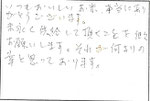 いつもおいしいお米、本当にあり
がとうございます。
末永く継続して頂くことを切に
お願いします。それが何よりの
幸と思っております。